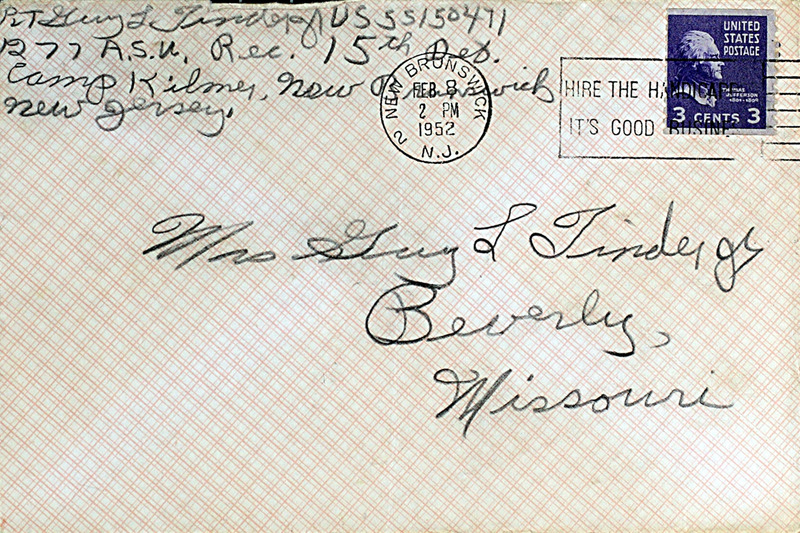 PVT Guy L Tinder Jr US 55150471
1277 A.S.U. Rec. 15th Det.
Camp Kilmer, New Brunswick
New Jersey.
NEW BRUNSWICK
2
N.J.
FEB 8
2 PM
1952
HIRE THE HANDICAP
IT'S GOOD BUSINE
UNITED
STATES
POSTAGE
THOMAS
JEFFERSON
1801-1809
3 CENTS 3
Mrs Guy L Tinder Jr
Beverly,
Missouri